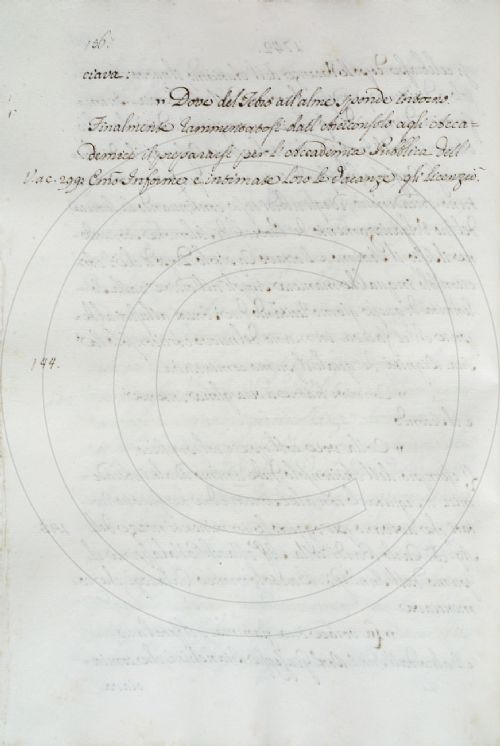 196.
ciava:
" Dove del Tebro all'alme sponde intorno.
Finalmente rammentatosi dall' Arciconsolo agli Acca-
demici il prepararsi per l'Accademia Pubblica dell'
V. a c. 299. Emo Informe e intimate loro le Vacanze gli licenziò.
144.